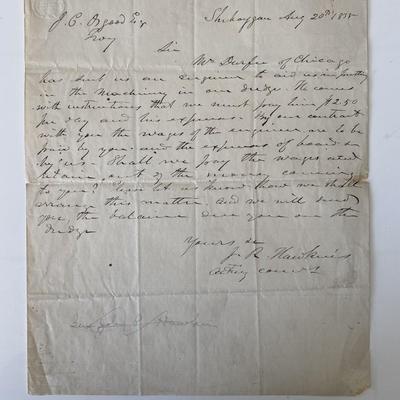 J. C. Osgood Esq Sheboygan Aug 20th 1855
Troy
Sir
Mr Durfee of Chicago
has sent us an engineer to aid us in putting
in the machinery in our dredge. He comes
with instructions that we must pay him $2.50
per day and his expenses. By our contract
with you the wages of the engineer are to be
paid by you and the expenses of board &c
by us. Shall we pay the wages and
retain out of the money coming
to you? Please let us know how we shall
arrange this matter and we will send
you the balance due you on the
dredge
Yours &c
J. R. Hawkins